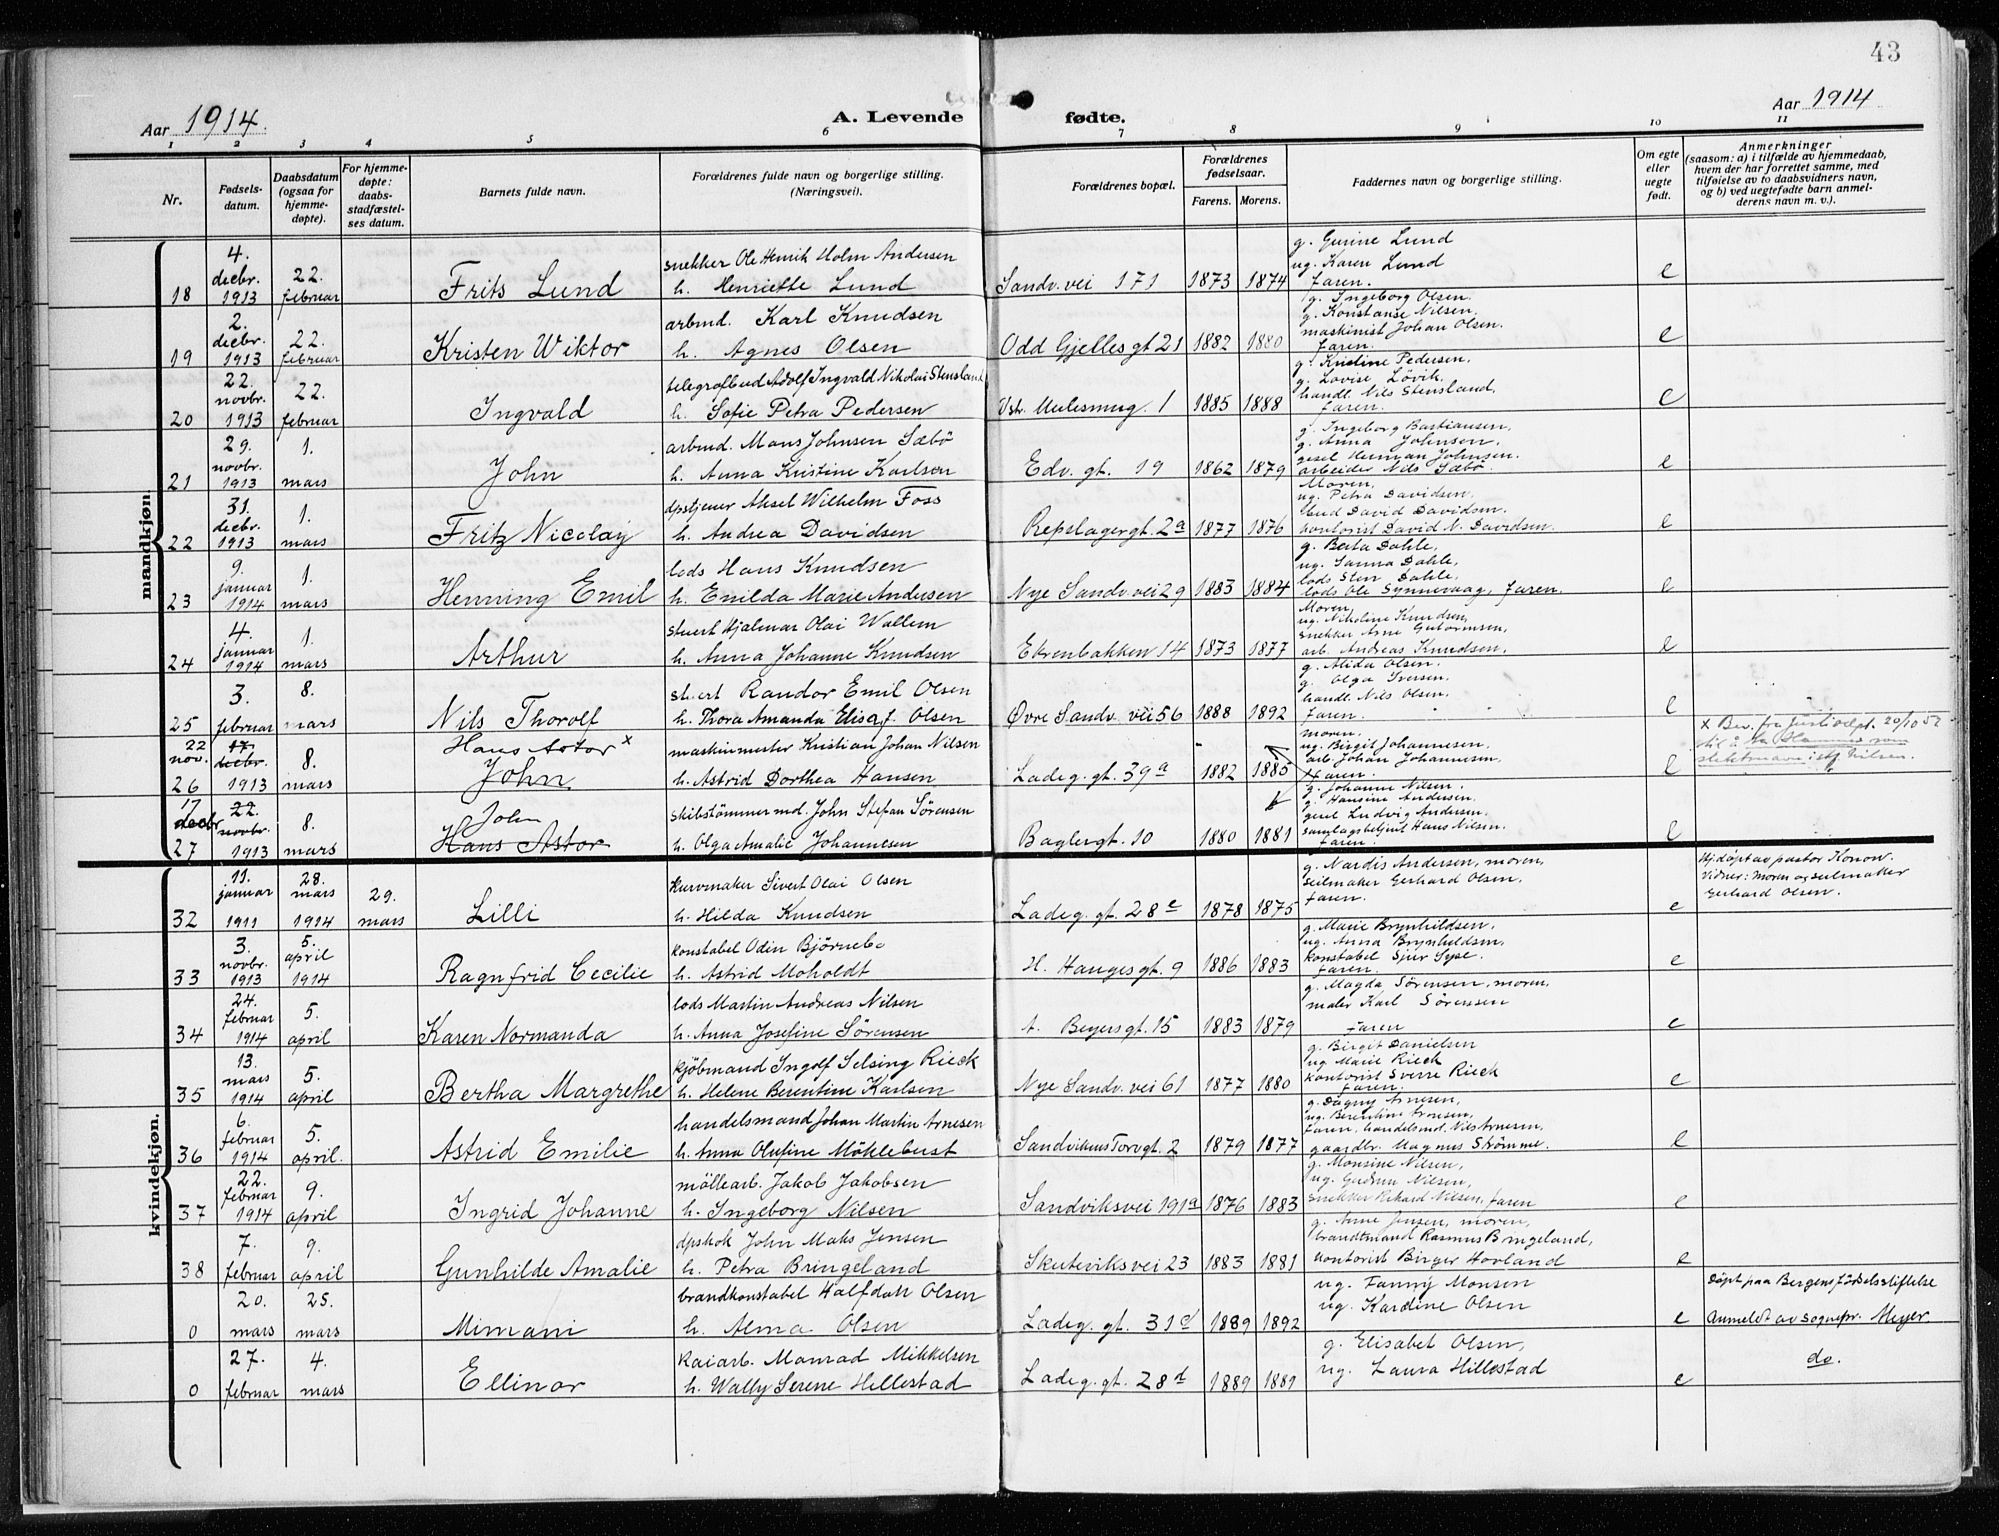 43
Aar 1914.
A. Levende
fødte.
Aar 1914
1 2 3 4 5 6 7 8 9 10 11
Nr.
Fødsels-
datum.
Daabsdatum
(ogsaa for
hjemme-
døpte).
For hjemme-
døpte:
daabs-
stadfæstel-
ses datum.
Barnets fulde navn.
Forældrenes fulde navn og borgerlige stilling.
(Næringsvei).
Forældrenes bopæl.
Forældrenes
fødselsaar.
Farens. Morens.
Faddernes navn og borgerlige stilling.
Om egte
eller
uegte
født.
Anmerkninger
(saasom: a) i tilfælde av hjemmedaab,
hvem der har forrettet samme, med
tilføielse av to daabsvidners navn,
og b) ved uegtefødte barn anmel-
derens navn m. v.).
mandkjøn.
18
4.
decbr.
1913
22.
februar
Frits Lund
snekker Ole Henrik Holm Andersen
h. Henriette Lund
Sandv. vei 171
1873 1874
g. Gurine Lund
ug. Karen Lund
faren.
e
19
2.
decbr.
1913
22.
februar
Kristen Wiktor
arbmd. Karl Knudsen
h. Agnes Olsen
Odd Gjelles gt 21
1882 1880
g. Ingeborg Olsen.
g. Konstanse Nilsen.
maskinist Johan Olsen.
faren.
e
20
22.
novbr.
1913
22.
februar
Ingvald
telegrafbud Adolf Ingvald Nikolai Stensland
h. Sofie Petra Pedersen
Vstr. Mulesmug. 1
1885 1888
g. Kristine Pedersen.
g. Lovise Løvik.
handl. Nils Stensland.
faren.
e
21
29.
novbr.
1913
1.
mars
John
arbmd. Mons Johnsen Sæbö
h. Anna Kristine Karlsen
Edv. gt. 19
1862 1879
g. Ingeborg Bastiansen,
g. Anna Johnsen,
gesel Herman Johnsen.
arbeider Nils Sæbö.
e
22
31.
decbr.
1913
1.
mars
Fritz Nicolay
dpstjener Aksel Wilhelm Foss
h. Andrea Davidsen
Repslagergt. 2a
1877 1876
Moren,
ug. Petra Davidsen,
bud David Davidsen.
kontorist David N. Davidsen.
e
23
9.
januar
1914
1.
mars
Henning Emil
lods Hans Knudsen
h. Emilda Marie Andersen
Nye Sandv. vei 29
1883 1884
g. Berta Dahle,
ug. Sanna Dahle,
lods Sten Dahle,
lods Ole Synnevaag, faren.
e
24
4.
januar
1914
1.
mars
Arthur
stuert Hjalmar Olai Wallem
h. Anna Johanne Knudsen
Ekrenbakken 14
1873 1877
Moren,
ug. Nikoline Knudsen,
snekker Arne Gutormsen,
arb. Andreas Knudsen.
e
25
3.
februar
8.
mars
Nils Thorolf
stuert Randor Emil Olsen
h. Thora Amanda Elisa f. Olsen
Øvre Sandv. vei 56
1888 1892
g. Alida Olsen.
g. Olga Iversen.
handl. Nils Olsen.
faren.
e
26
22 17.
nov. decbr.
1913
8.
mars
Hans Astor x
John
maskinmester Kristian Johan Nilsen
h. Astrid Dorthea Hansen
Ladeg. gt. 39a
1882 1885
moren.
ug. Birgit Johannesen,
arb. Johan Johannesen,
faren.
e
x Bev. fra Justisdept. 20/10 52
til å ta
som
slektsnavn istf. Nilsen.
27
17 22.
decbr novbr.
1913
8.
mars
John
Hans Astor
skibstömmermd. John Stefan Sørensen
h. Olga Amalie Johannesen
Baglergt. 10
1880 1881
g. Johanne Nilsen.
g. Hansine Andersen.
gesel Ludvig Andersen.
samlagsbetjent Hans Nilsen.
faren.
e
kvindekjøn.
32
11.
januar
1911
28.
mars
1914
29.
mars
Lilli
kurvmaker Sivert Olai Olsen
h. Hilda Knudsen
Ladeg. gt. 28c
1878 1875
g. Nardis Andersen, moren,
seilmaker Gerhard Olsen.
faren.
e
Hj.døpt av pastor Konow.
Vidner: Moren og seilmaker
Gerhard Olsen.
33
3.
novbr.
1913
5.
april
1914
Ragnfrid Cecilie
konstabel Odin Bjørnebo
h. Astrid Moholdt
H. Hauges gt. 9
1886 1883
g. Marie Brynhildsen,
ug. Anna Brynhildsen,
konstabel Sjur Syse.
faren.
e
34
24.
februar
1914
5.
april
Karen Normanda
lods Martin Andreas Nilsen
h. Anna Josefine Sørensen
A. Beyersgt. 15
1883 1879
g. Magda Sörensen, moren,
maler Karl Sörenssen
faren
e
35
13.
mars
1914
5.
april
Bertha Margrethe
kjöbmand Ingolf Selsing Rieck
h. Helene Berentine Karlsen
Nye Sandv. vei 61
1877 1880
g. Birgit Danielsen
ug. Marie Rieck
kontorist Sverre Rieck
faren.
e
36
6.
februar
1914
5.
april.
Astrid Emilie
handelsmand Johan Martin Arnesen
h. Anna Olufine Möklebust
Sandvikens Torvgt. 2
1879 1877
g. Dagny Arnesen,
ug. Berentine Arnesen,
faren, handelsmd. Nils Arnesen,
gaardbr. Magnus Strömme.
e
37
22.
februar
1914
9.
april
Ingrid Johanne
möllearb. Jakob Jakobsen
h. Ingeborg Nilsen
Sandviksvei 191a
1876 1883
g. Monsine Nilsen,
ug. Gudrun Nilsen,
snekker Rikard Nilsen, faren
e
38
7.
februar
9.
april
Gunhilde Amalie
dpskok John Maks Jensen
h. Petra Bringeland
Skuteviksvei 23
1883 1881
g. Anne Jensen, moren,
brandtmand Rasmus Bringeland,
kontorist Birger Hovland
e
0
20.
mars
25.
mars
Mimani
brandkonstabel Halfdan Olsen
h. Alma Olsen
Ladeg. gt. 31d
1889 1892
ug. Fanny Monsen
ug. Karoline Olsen
e
Døpt paa Bergens fødselsstiftelse
Anmeldt av sognepr. Meyer
0
27.
februar
4.
mars
Ellinor
kaiarb. Monrad Mikkelsen
h. Wally Serene Hillestad
Ladeg. gt. 28d
1889 1889
g. Elisabet Olsen,
ug. Laura Hillestad
e
do.